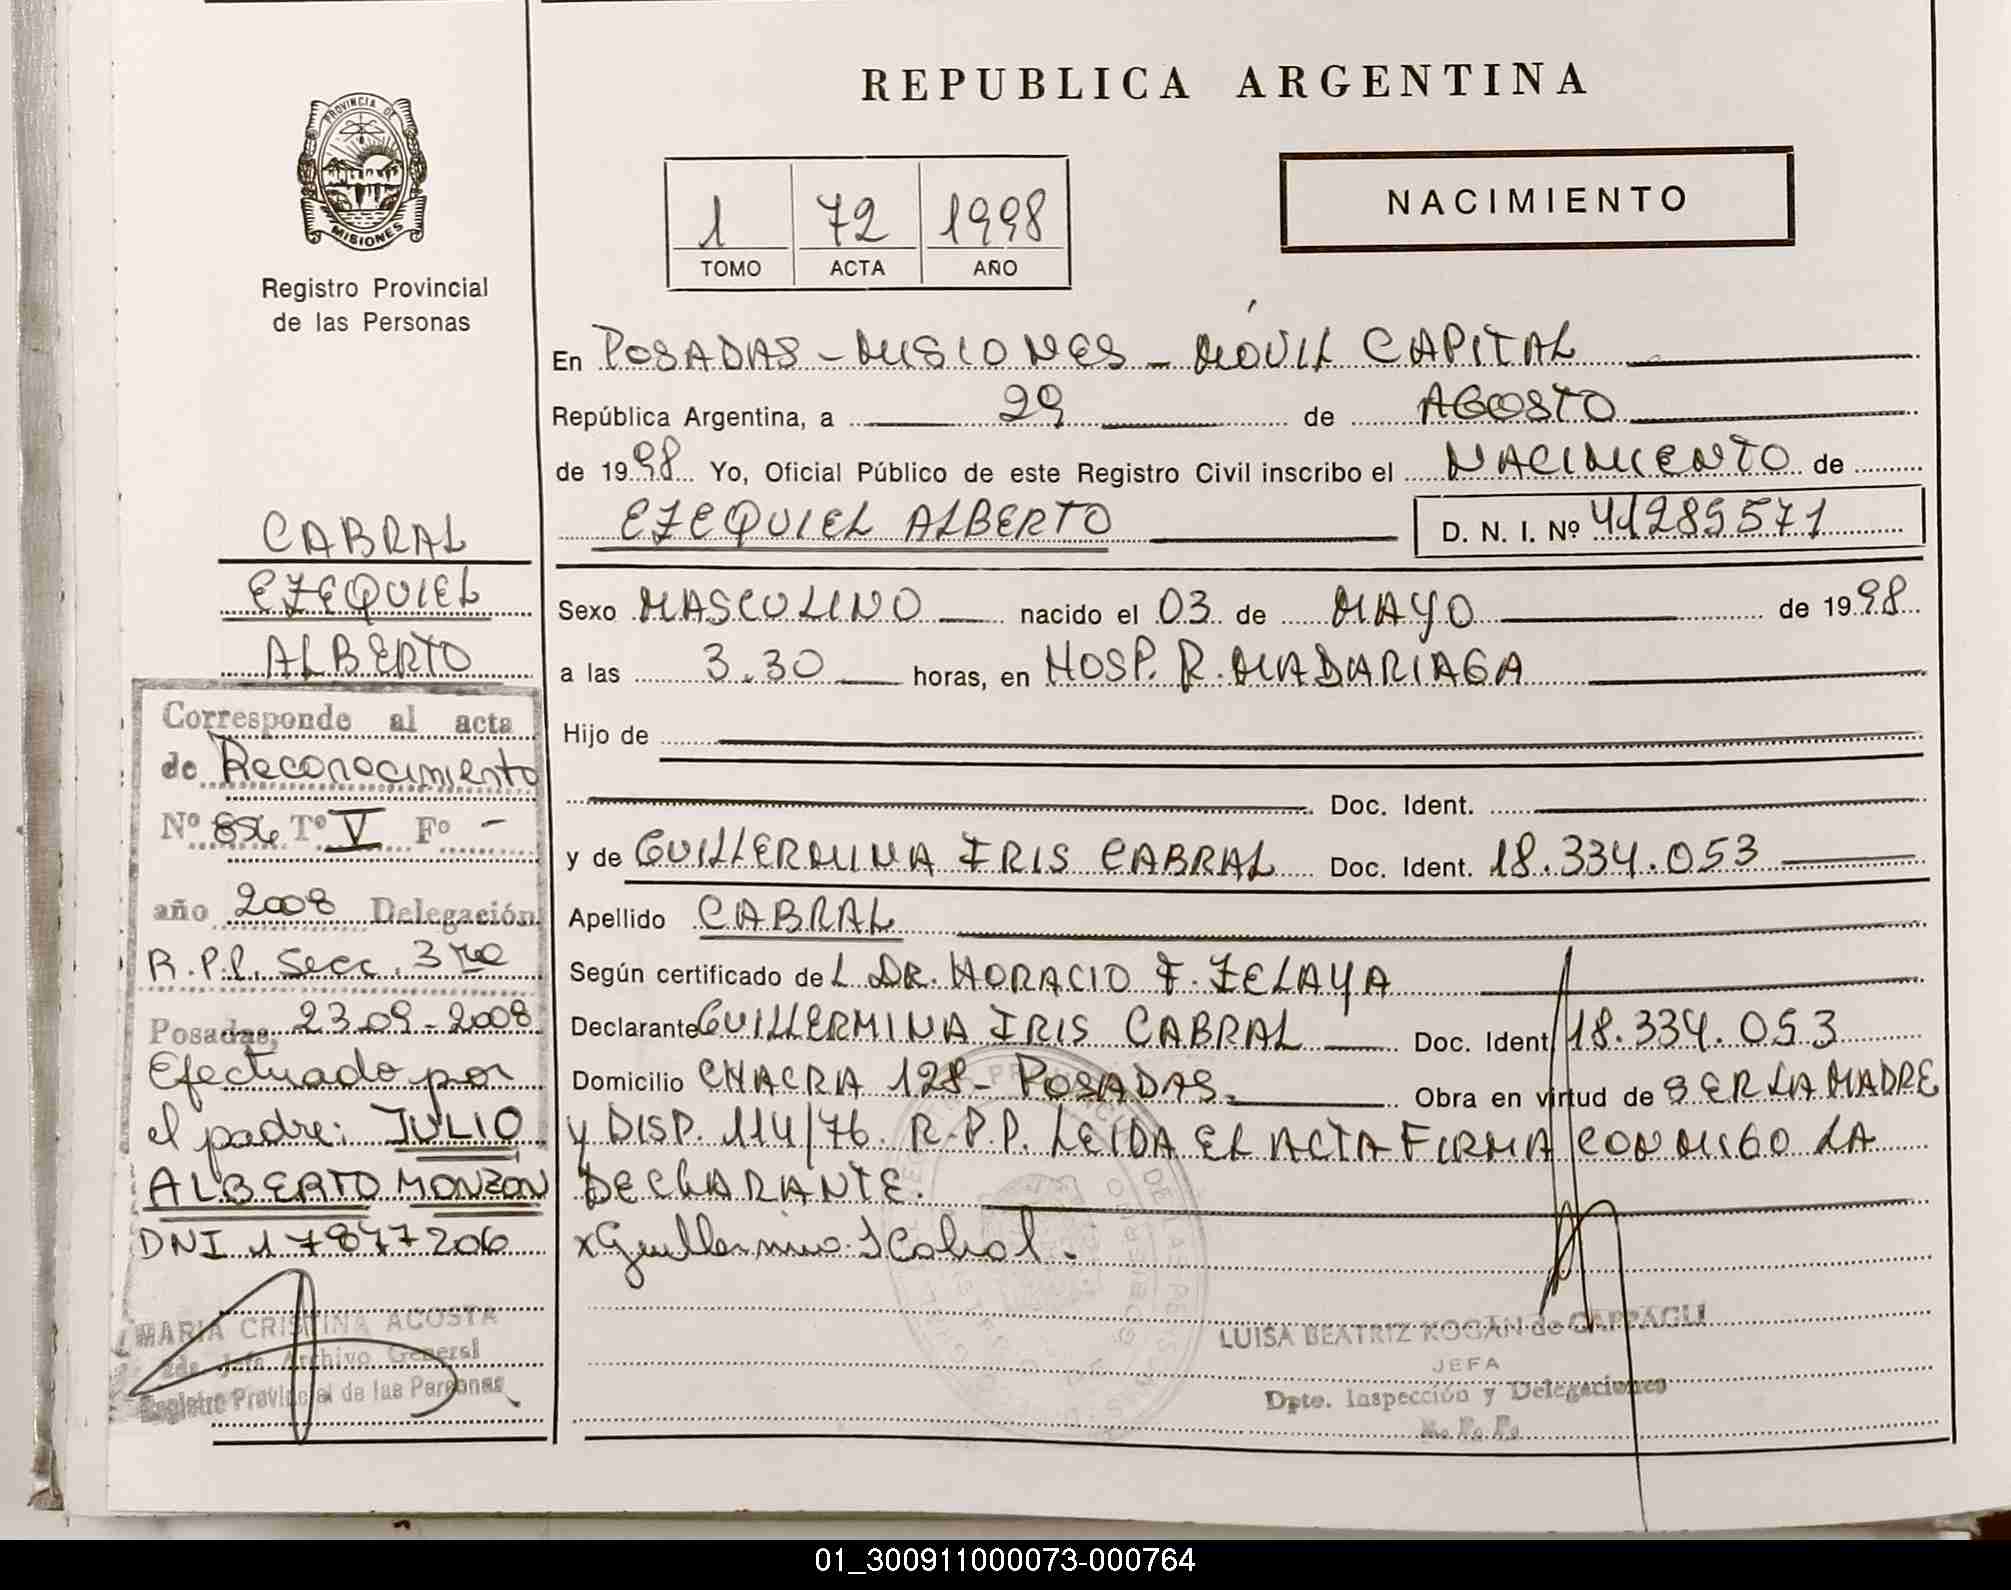 REPUBLICA ARGENTINA
PROVINCIA DE
MISIONES
Registro Provincial
de las Personas
1 72 1998
TOMO ACTA AÑO
NACIMIENTO
En POSADAS - MISIONES - MÓVIL CAPITAL
República Argentina, a 29 de AGOSTO
de 1998 Yo, Oficial Público de este Registro Civil inscribo el NACIMIENTO de
EZEQUIEL ALBERTO D. N. I. Nº 41289571
Sexo MASCULINO nacido el 03 de MAYO de 1998
a las 3.30 horas, en HOSP. R. MADARIAGA
Hijo de
Doc. Ident.
y de GUILLERMINA IRIS CABRAL Doc. Ident. 18.334.053
Apellido CABRAL
Según certificado de L DR. HORACIO F. ZELAYA
Declarante GUILLERMINA IRIS CABRAL Doc. Ident 18.334.053
Domicilio CHACRA 128 - POSADAS. Obra en virtud de SER LA MADRE
y DISP. 114/76 R.P.P. LEIDA EL ACTA FIRMA CONMIGO LA
DECLARANTE.
x Guillermina I Cabral.
LUISA BEATRIZ KOGAN de
JEFA
Dpto. Inspección y Delegaciones
CABRAL
EZEQUIEL
ALBERTO
Corresponde al acta
de Reconocimiento
Nº 856 Tº V Fº -
año 2008 Delegación
R.P.P. Secc. 3ra
Posadas, 23.09-2008
Efectuado por
el padre: JULIO
ALBERTO MONZON
DNI 17877206
MARIA CRISTINA ACOSTA
2da. Jefa Archivo General
Registro Provincial de las Personas
01_300911000073-000764